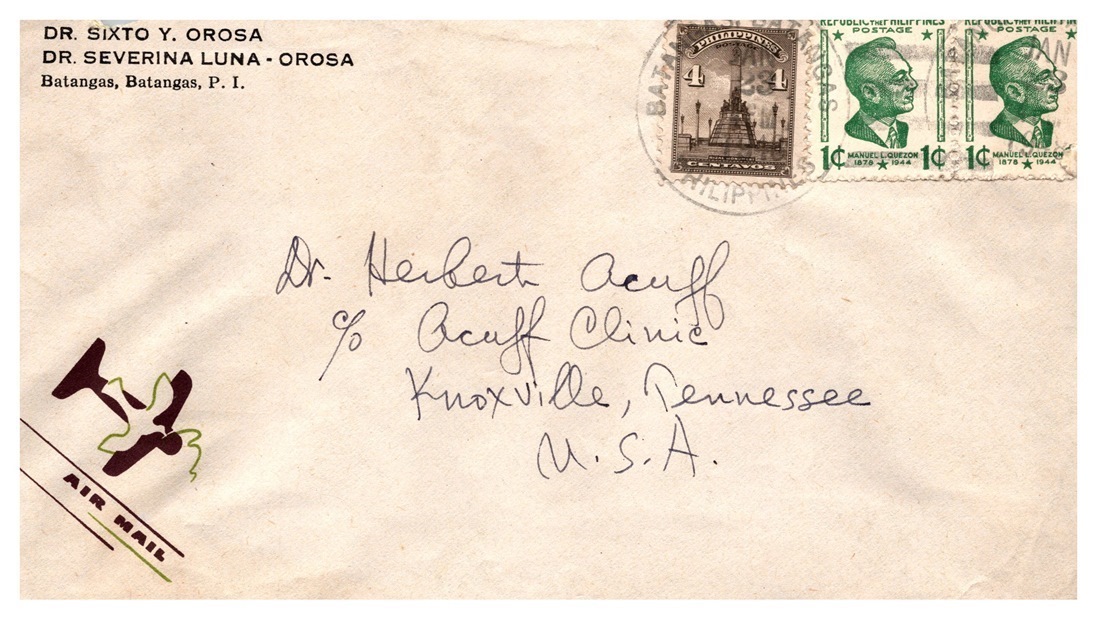 DR. SIXTO Y. OROSA
DR. SEVERINA LUNA - OROSA
Batangas, Batangas, P. I.
BATANGAS, BATANGAS
JAN
23
PHILIPPINES
PHILIPPINES
POSTAGE
4 4
CENTAVOS
REPUBLIC OF THE PHILIPPINES
POSTAGE
1¢ MANUEL L. QUEZON 1¢
1878 1944
REPUBLIC OF THE PHILIPPINES
POSTAGE
1¢ MANUEL L. QUEZON
1878 1944
JAN
Dr. Herbert Acuff
c/o Acuff Clinic
Knoxville, Tennessee
U. S. A.
AIR MAIL